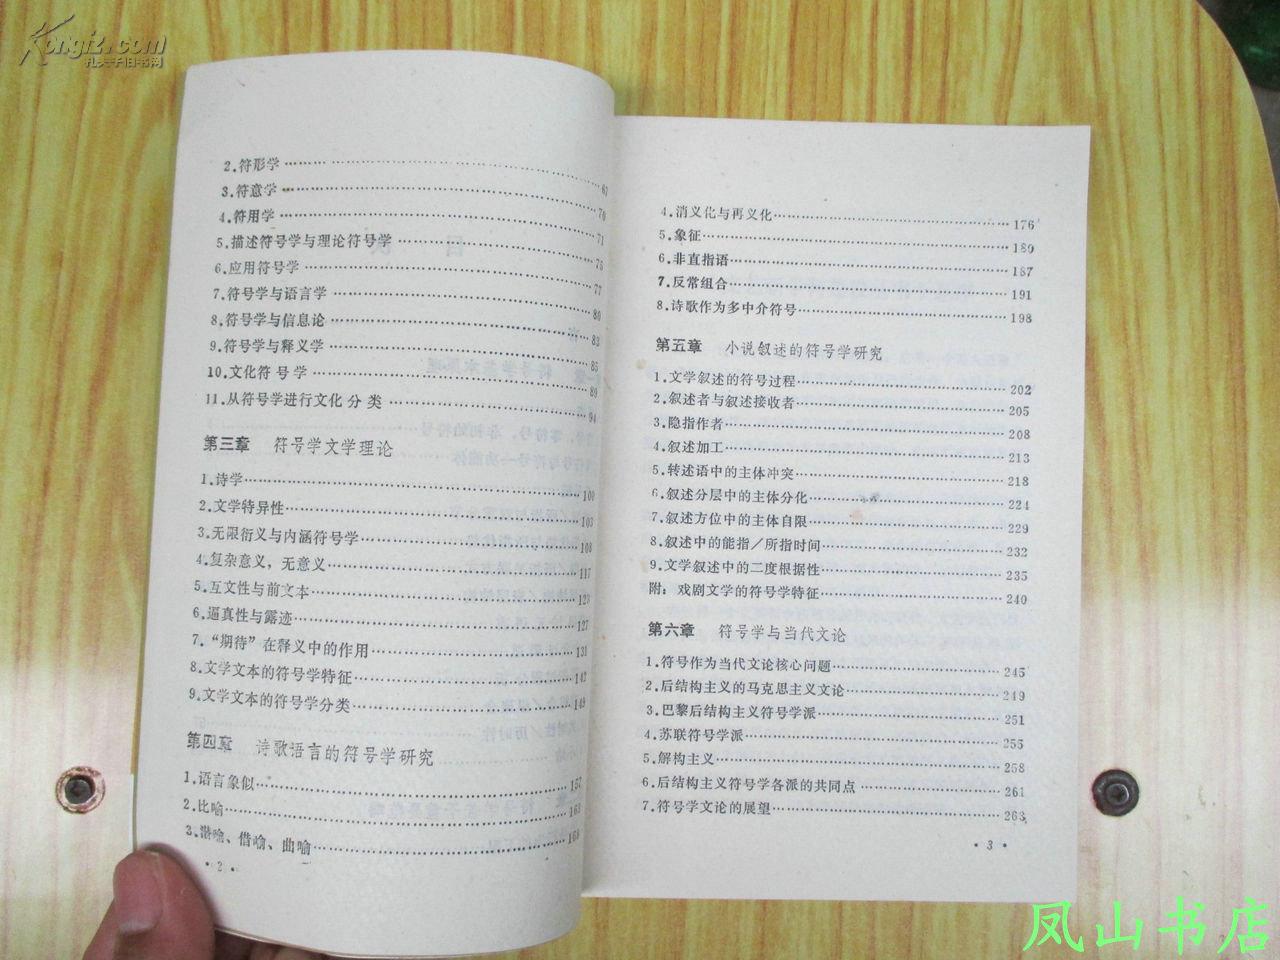 Kongfz.com
孔夫子旧书网
2.符形学……67
3.符意学……70
4.符用学……71
5.描述符号学与理论符号学……75
6.应用符号学……77
7.符号学与语言学……80
8.符号学与信息论……83
9.符号学与释义学……85
10.文化符号学……89
11.从符号学进行文化分类……94
第三章 符号学文学理论
1.诗学……100
2.文学特异性……103
3.无限衍义与内涵符号学……108
4.复杂意义，无意义……117
5.互文性与前文本……123
6.逼真性与露迹……127
7.“期待”在释义中的作用……131
8.文学文本的符号学特征……142
9.文学文本的符号学分类……149
第四章 诗歌语言的符号学研究
1.语言象似……157
2.比喻……163
3.潜喻、借喻、曲喻……168
·2·
4.消义化与再义化……176
5.象征……180
6.非直指语……187
7.反常组合……191
8.诗歌作为多中介符号……198
第五章 小说叙述的符号学研究
1.文学叙述的符号过程……202
2.叙述者与叙述接收者……205
3.隐指作者……208
4.叙述加工……213
5.转述语中的主体冲突……218
6.叙述分层中的主体分化……224
7.叙述方位中的主体自限……229
8.叙述中的能指／所指时间……232
9.文学叙述中的二度根据性……235
附：戏剧文学的符号学特征……240
第六章 符号学与当代文论
1.符号作为当代文论核心问题……245
2.后结构主义的马克思主义文论……249
3.巴黎后结构主义符号学派……251
4.苏联符号学派……255
5.解构主义……258
6.后结构主义符号学各派的共同点……261
7.符号学文论的展望……263
·3·
凤山书店